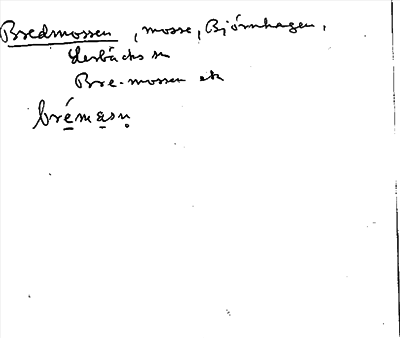 Bredmossen, mosse, Björnhagen,
Lerbäcks sn
Bre-mossen ek
brémasn̥